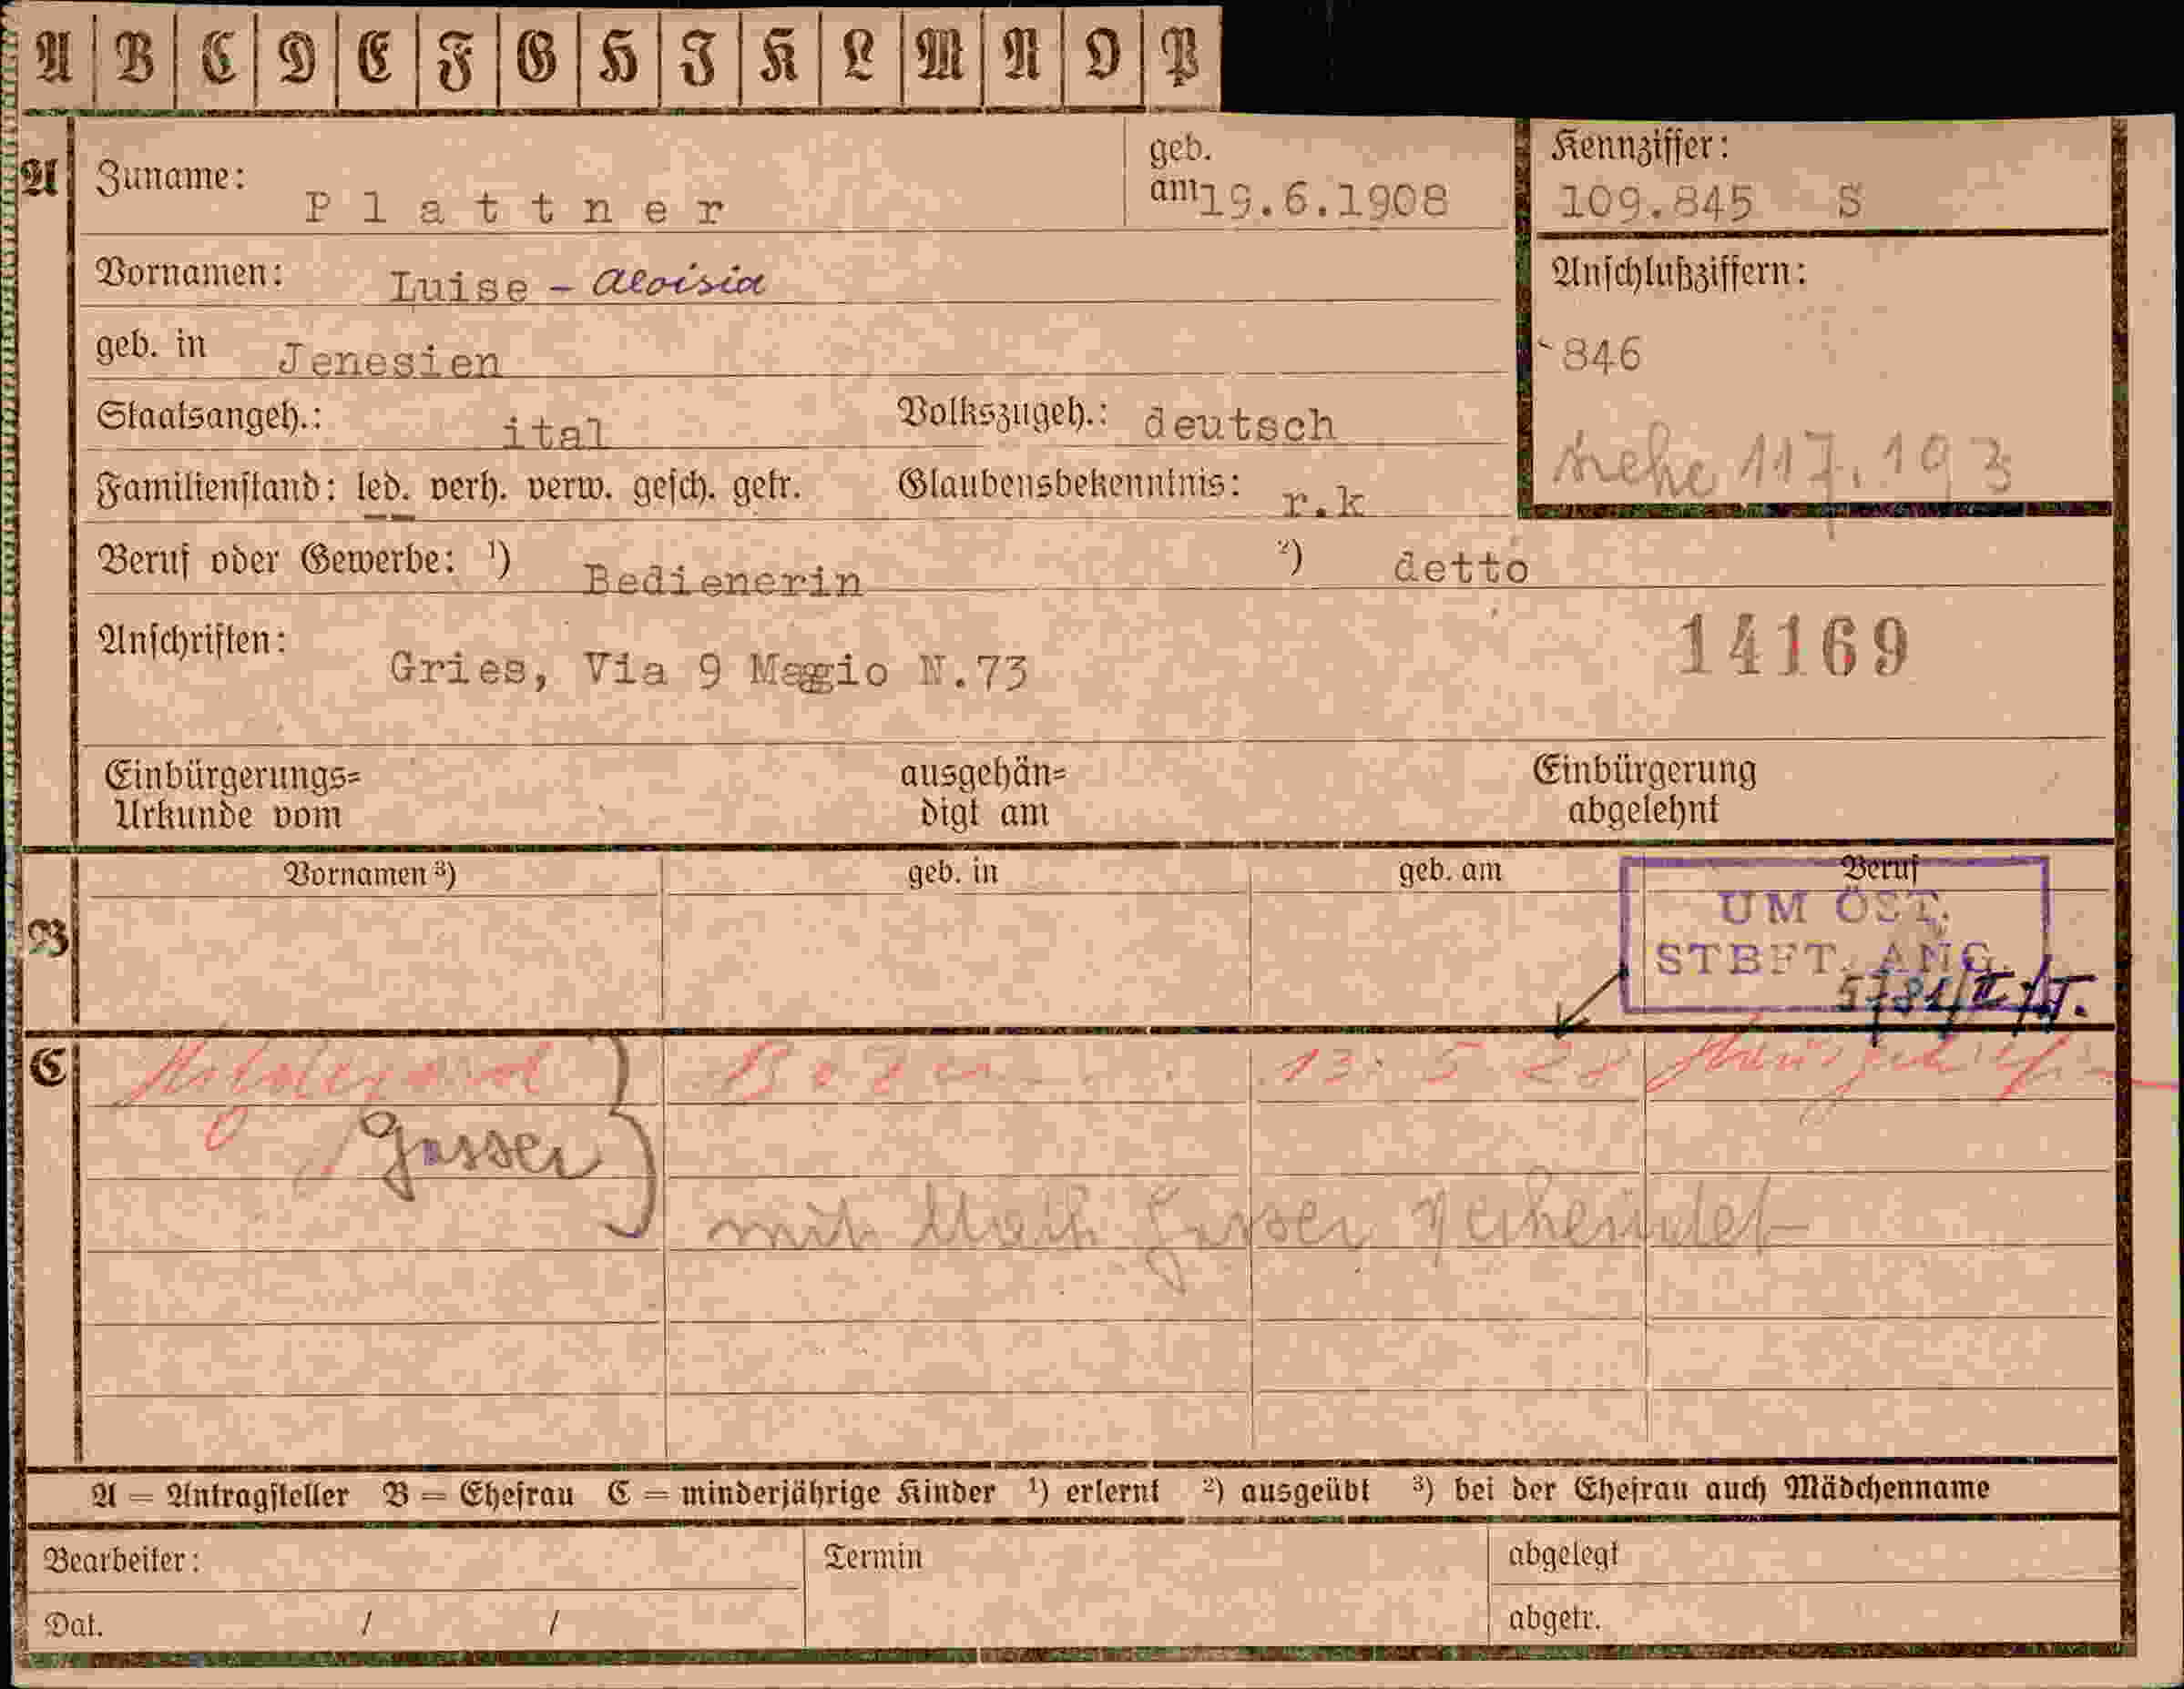 A B C D E F G H J K L M N O P
A Zuname: Plattner geb. am 19.6.1908
Kennziffer: 109.845 S
Vornamen: Luise - Aloisia
Anschlußziffern:
846
geb. in Jenesien
Staatsangeh.: ital Volkszugeh.: deutsch
siehe 117.193
Familienstand: led. verh. verw. gesch. getr. Glaubensbekenntnis: r.k
Beruf oder Gewerbe: 1) Bedienerin 2) detto
Anschriften: Gries, Via 9 Maggio N.73
14169
Einbürgerungs= Urkunde vom
ausgehän= digt am
Einbürgerung abgelehnt
Vornamen 3) geb. in geb. am Beruf
B
UM ÖST.
STBFT. ANG.
C Hildegard Bozen 13. 5. 28
Gasser
mit Gasser verheiratet
A = Antragsteller B = Ehefrau C = minderjährige Kinder 1) erlernt 2) ausgeübt 3) bei der Ehefrau auch Mädchenname
Bearbeiter: Termin abgelegt
Dat. / / abgetr.